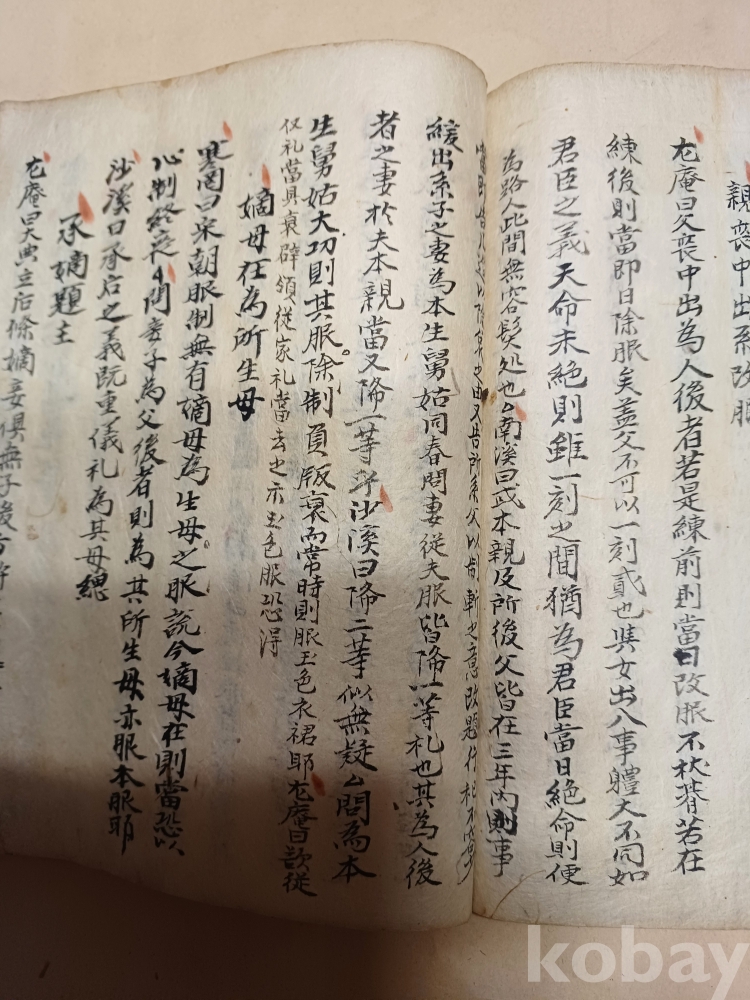 親喪中出系改服
尤庵曰父喪中出為人後者若是練前則當日改服不杖朞若在
練後則當即日除服矣盖父不可以一刻貳也與女出八事軆大不同如
君臣之義天命未絶則雖一刻之間猶為君臣當日絶命則便
為路人此間無容髪処也南溪曰或本親及所後父皆在三年内則事
又告所系父以制斬之意改題
緩出系子之妻為本生舅姑同春問妻従夫服皆降一等礼也其為人後
者之妻於夫本親當又降一等乎沙溪曰降二等似無疑問為本
生舅姑大功則其服除制負版衰而常時則服玉色衣裙耶尤庵曰欲従
仪礼當具衰辟領従家礼當去之示玉色服恐得
嫡母在為所生母
寒岡曰宋朝服制無有嫡母為生母之服説今嫡母在則當恐以
心制終喪問妾子為父後者則為其所生母亦服本服耶
沙溪曰承后之義既重儀礼為其母緦
承嫡題主
尤庵曰大典立后條嫡妾俱無子後方
kobay